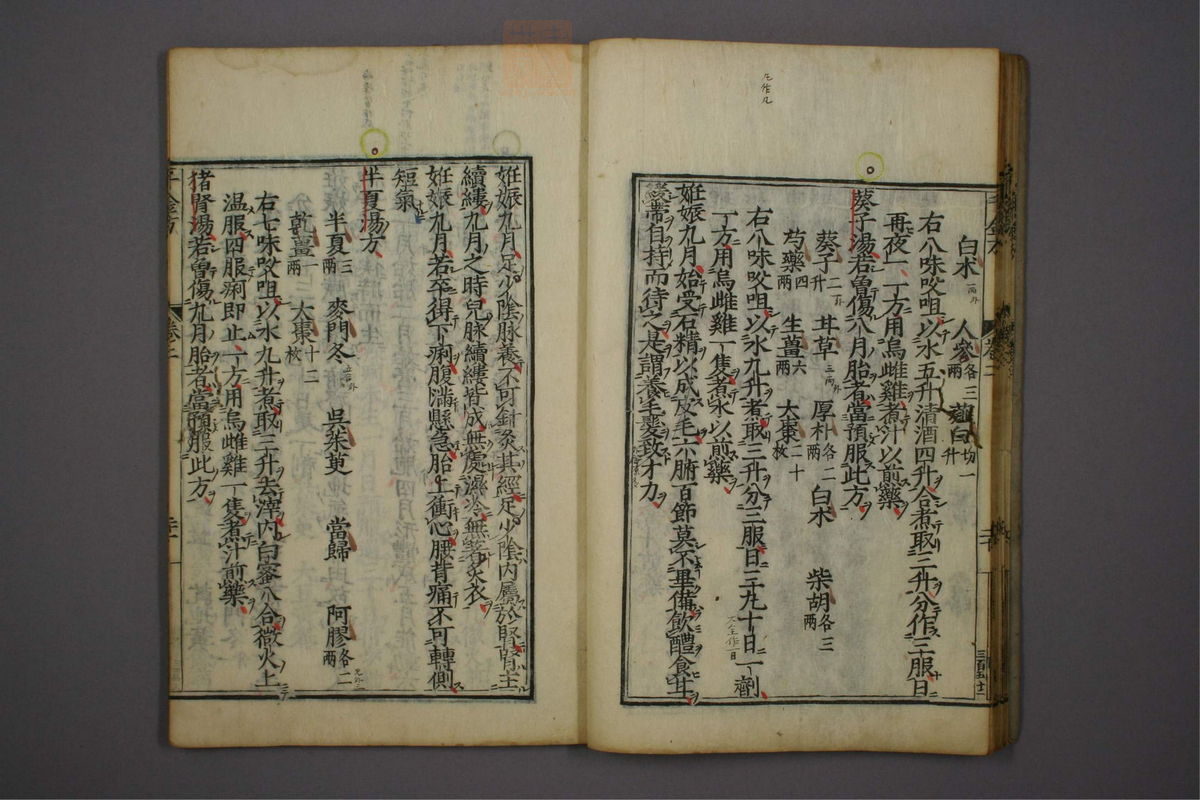 白朮 人參各三兩 薤白切一升
右八味㕮咀以水五升清酒四升合煮取三升分作三服日
再夜一一方用烏雌雞煮汁以煎藥
葵子湯若曾傷八月胎者當預服此方
葵子二升 甘草 厚朴各二兩 白朮 柴胡各三兩
芍藥四兩 生薑六兩 大棗二十枚
右八味㕮咀以水九升煮取三升分三服日三凡十日一劑
一方用烏雌雞一隻煮水以煎藥
妊娠九月始受石精以成皮毛六腑百節莫不畢備飲醴食甘
緩帶自持而待之是謂養毛髮致才力
妊娠九月足少陰脉養不可針灸其經足少陰內屬於腎腎主
續縷九月之時兒脉續縷皆成無處濕冷無著炙衣
妊娠九月若卒得下痢腹滿懸急胎上衝心腰背痛不可轉側
短氣
半夏湯方
半夏三兩 麥門冬 吳茱萸 當歸 阿膠各二兩
乾薑一兩 大棗十二枚
右七味㕮咀以水九升煮取三升去滓內白蜜八合微火上
温服四服痢即止一方用烏雌雞一隻煮汁煎藥
猪腎湯若曾傷九月胎者當預服此方
千金方 卷二